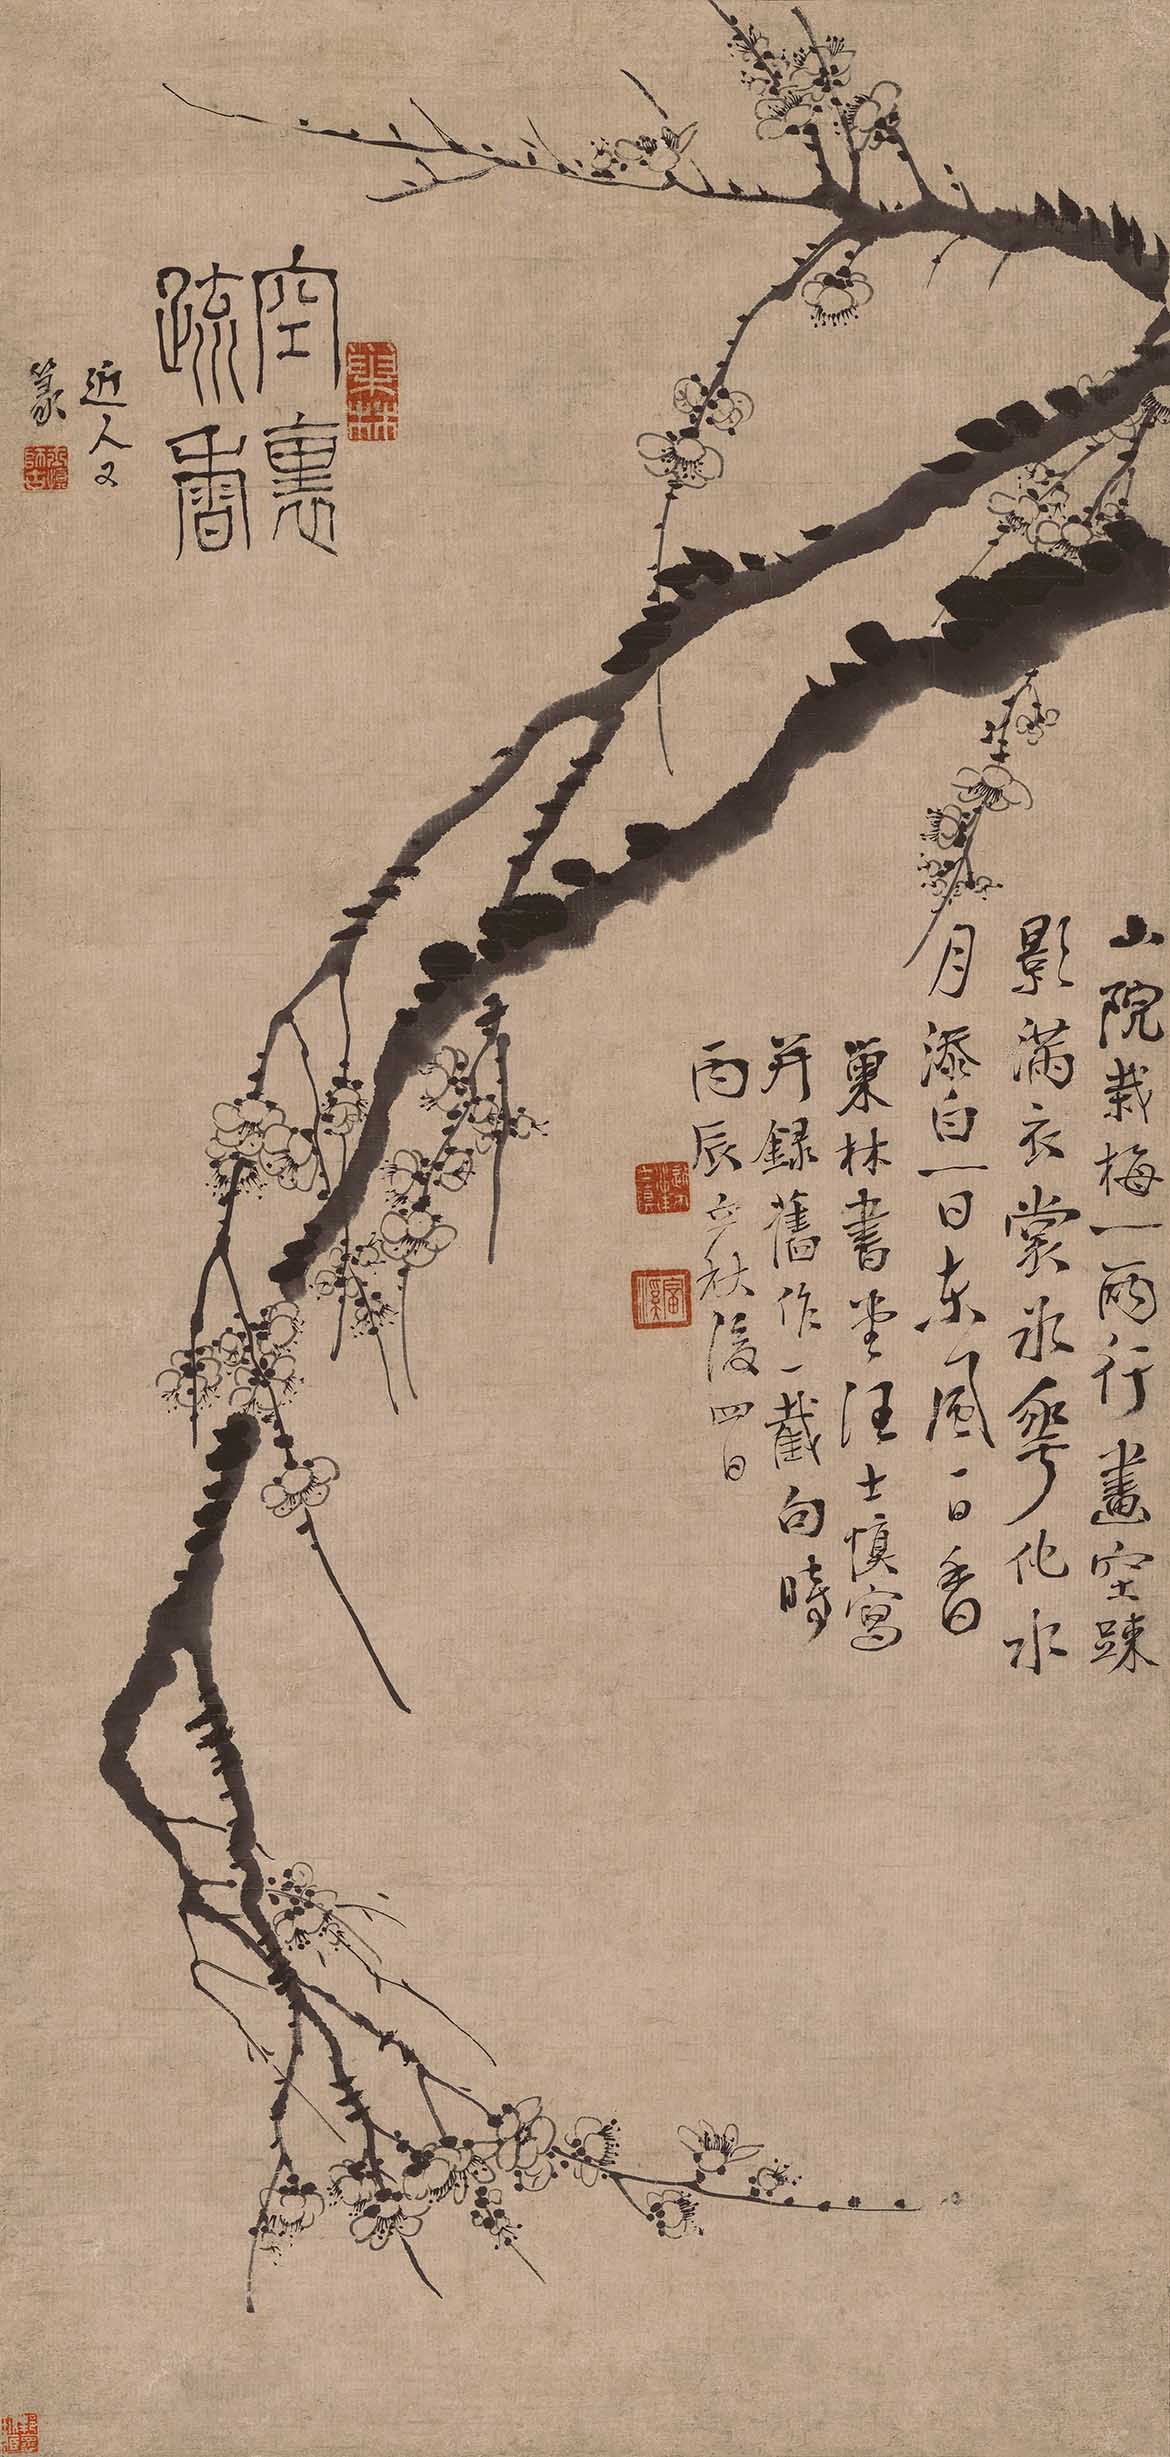 山院栽梅一兩行畫空踈
影滿衣裳冰華化水
月添白一日東風一日香
巢林書堂汪士慎寫
并錄舊作一截句時
丙辰立秋後四日
富溪
巢林
空裏
疏香
近人又
篆